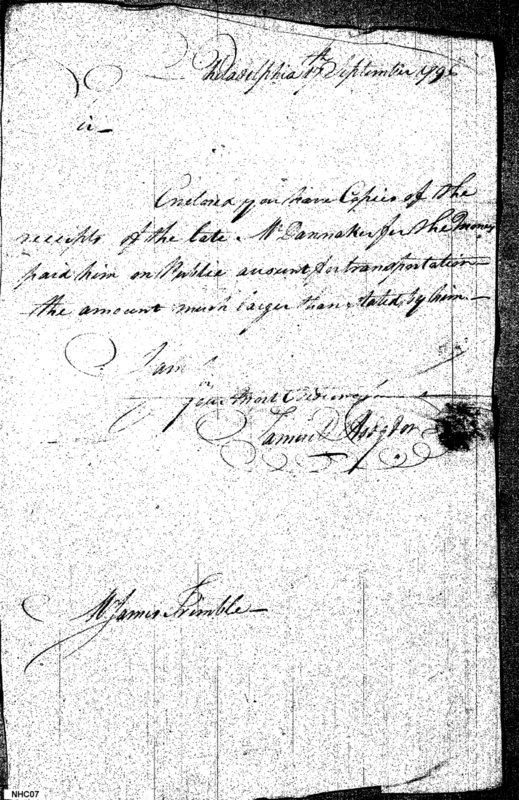 Philadelphia September 179
Enclosed you have Copies of the
receipts of the late Mr Dannaker for the Money
paid him on Public account for transportation
the amount much larger than stated by him
I am
your most
Samuel Hodgdon
Mr James Trimble
NHC07